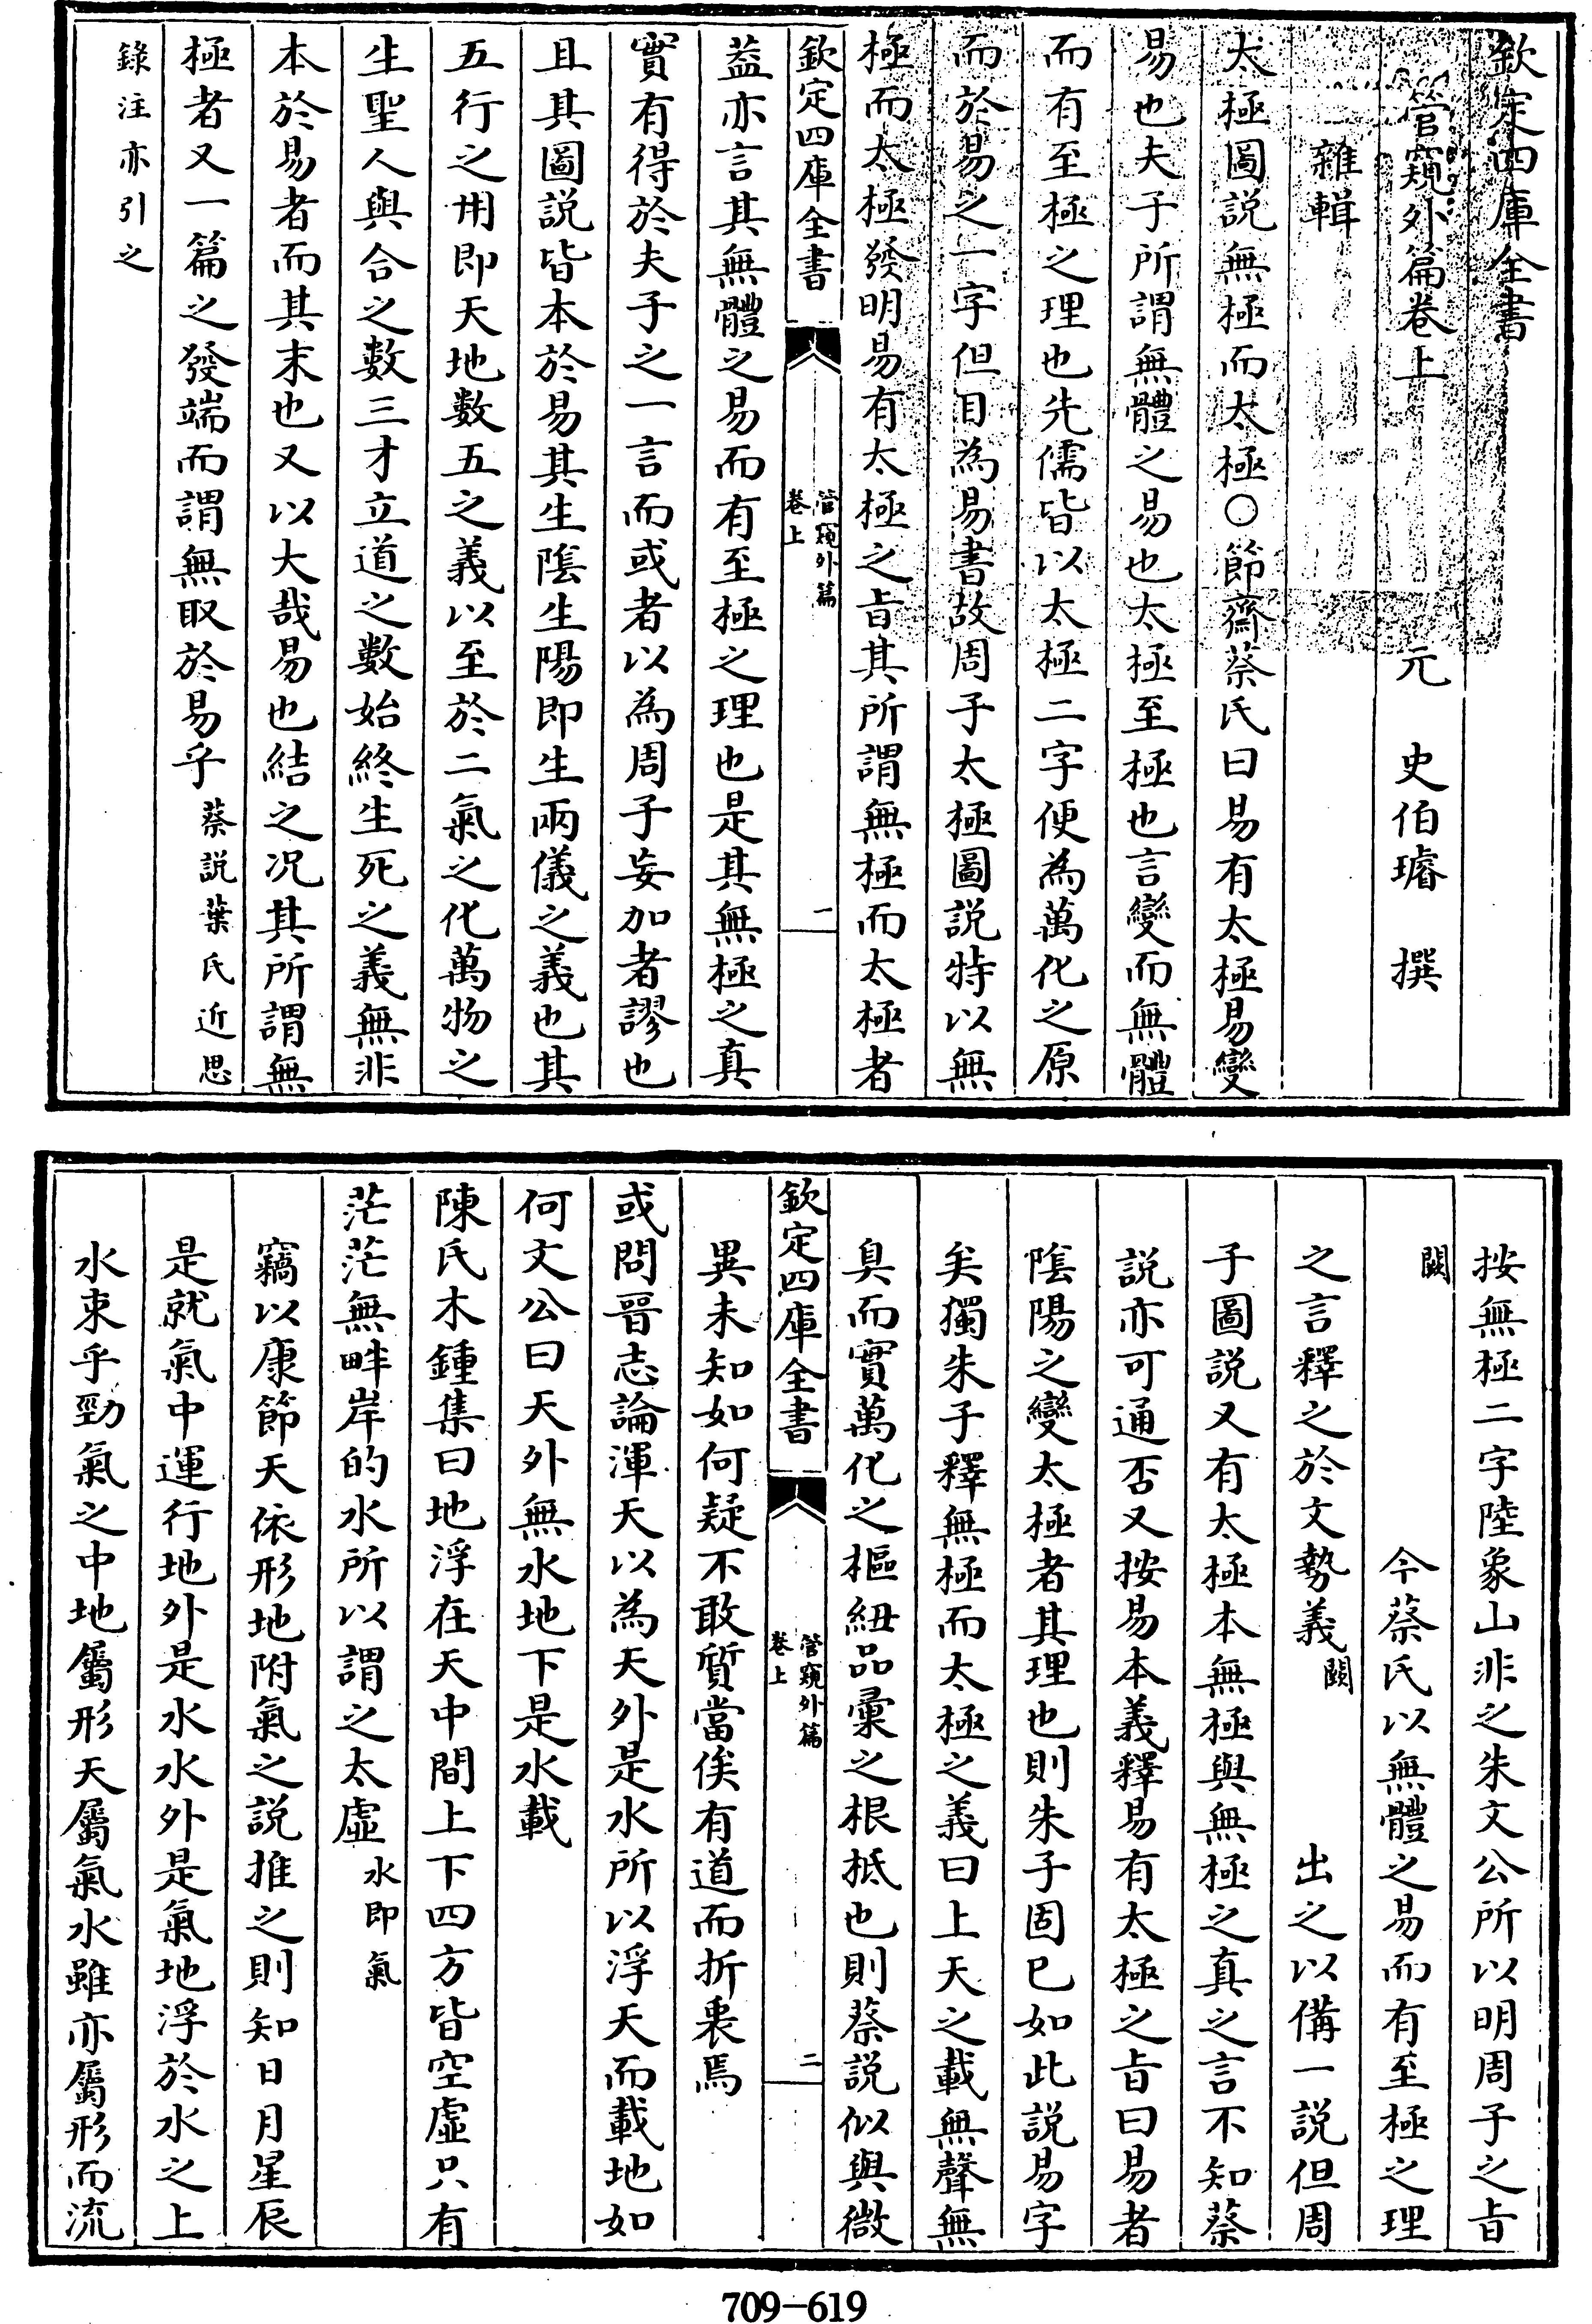 欽定四庫全書
管窺外篇卷上
元 史伯璿 撰
雜輯
太極圖說無極而太極○節齋蔡氏曰易有太極易變
易也夫子所謂無體之易也太極至極也言變而無體
而有至極之理也先儒皆以太極二字便為萬化之原
而於易之一字但目為易書故周子太極圖說特以無
極而太極發明易有太極之旨其所謂無極而太極者
欽定四庫全書
管窺外篇
卷上
一
蓋亦言其無體之易而有至極之理也是其無極之真
實有得於夫子之一言而或者以為周子妄加者謬也
且其圖說皆本於易其生陰生陽即生兩儀之義也其
五行之用即天地數五之義以至於二氣之化萬物之
生聖人與合之數三才立道之數始終生死之義無非
本於易者而其末也又以大哉易也結之况其所謂無
極者又一篇之發端而謂無取於易乎蔡說葉氏近思
錄注亦引之
按無極二字陸象山非之朱文公所以明周子之旨
闕 今蔡氏以無體之易而有至極之理
之言釋之於文勢義闕 出之以備一說但周
子圖說又有太極本無極與無極之真之言不知蔡
說亦可通否又按易本義釋易有太極之旨曰易者
陰陽之變太極者其理也則朱子固已如此說易字
矣獨朱子釋無極而太極之義曰上天之載無聲無
臭而實萬化之樞紐品彙之根柢也則蔡說似與微
欽定四庫全書
管窺外篇
卷上
二
異未知如何疑不敢質當俟有道而折衷焉
或問晉志論渾天以為天外是水所以浮天而載地如
何文公曰天外無水地下是水載
陳氏木鍾集曰地浮在天中間上下四方皆空虛只有
茫茫無畔岸的水所以謂之太虛水即氣
竊以康節天依形地附氣之說推之則知日月星辰
是就氣中運行地外是水水外是氣地浮於水之上
水束乎勁氣之中地屬形天屬氣水雖亦屬形而流
709-619